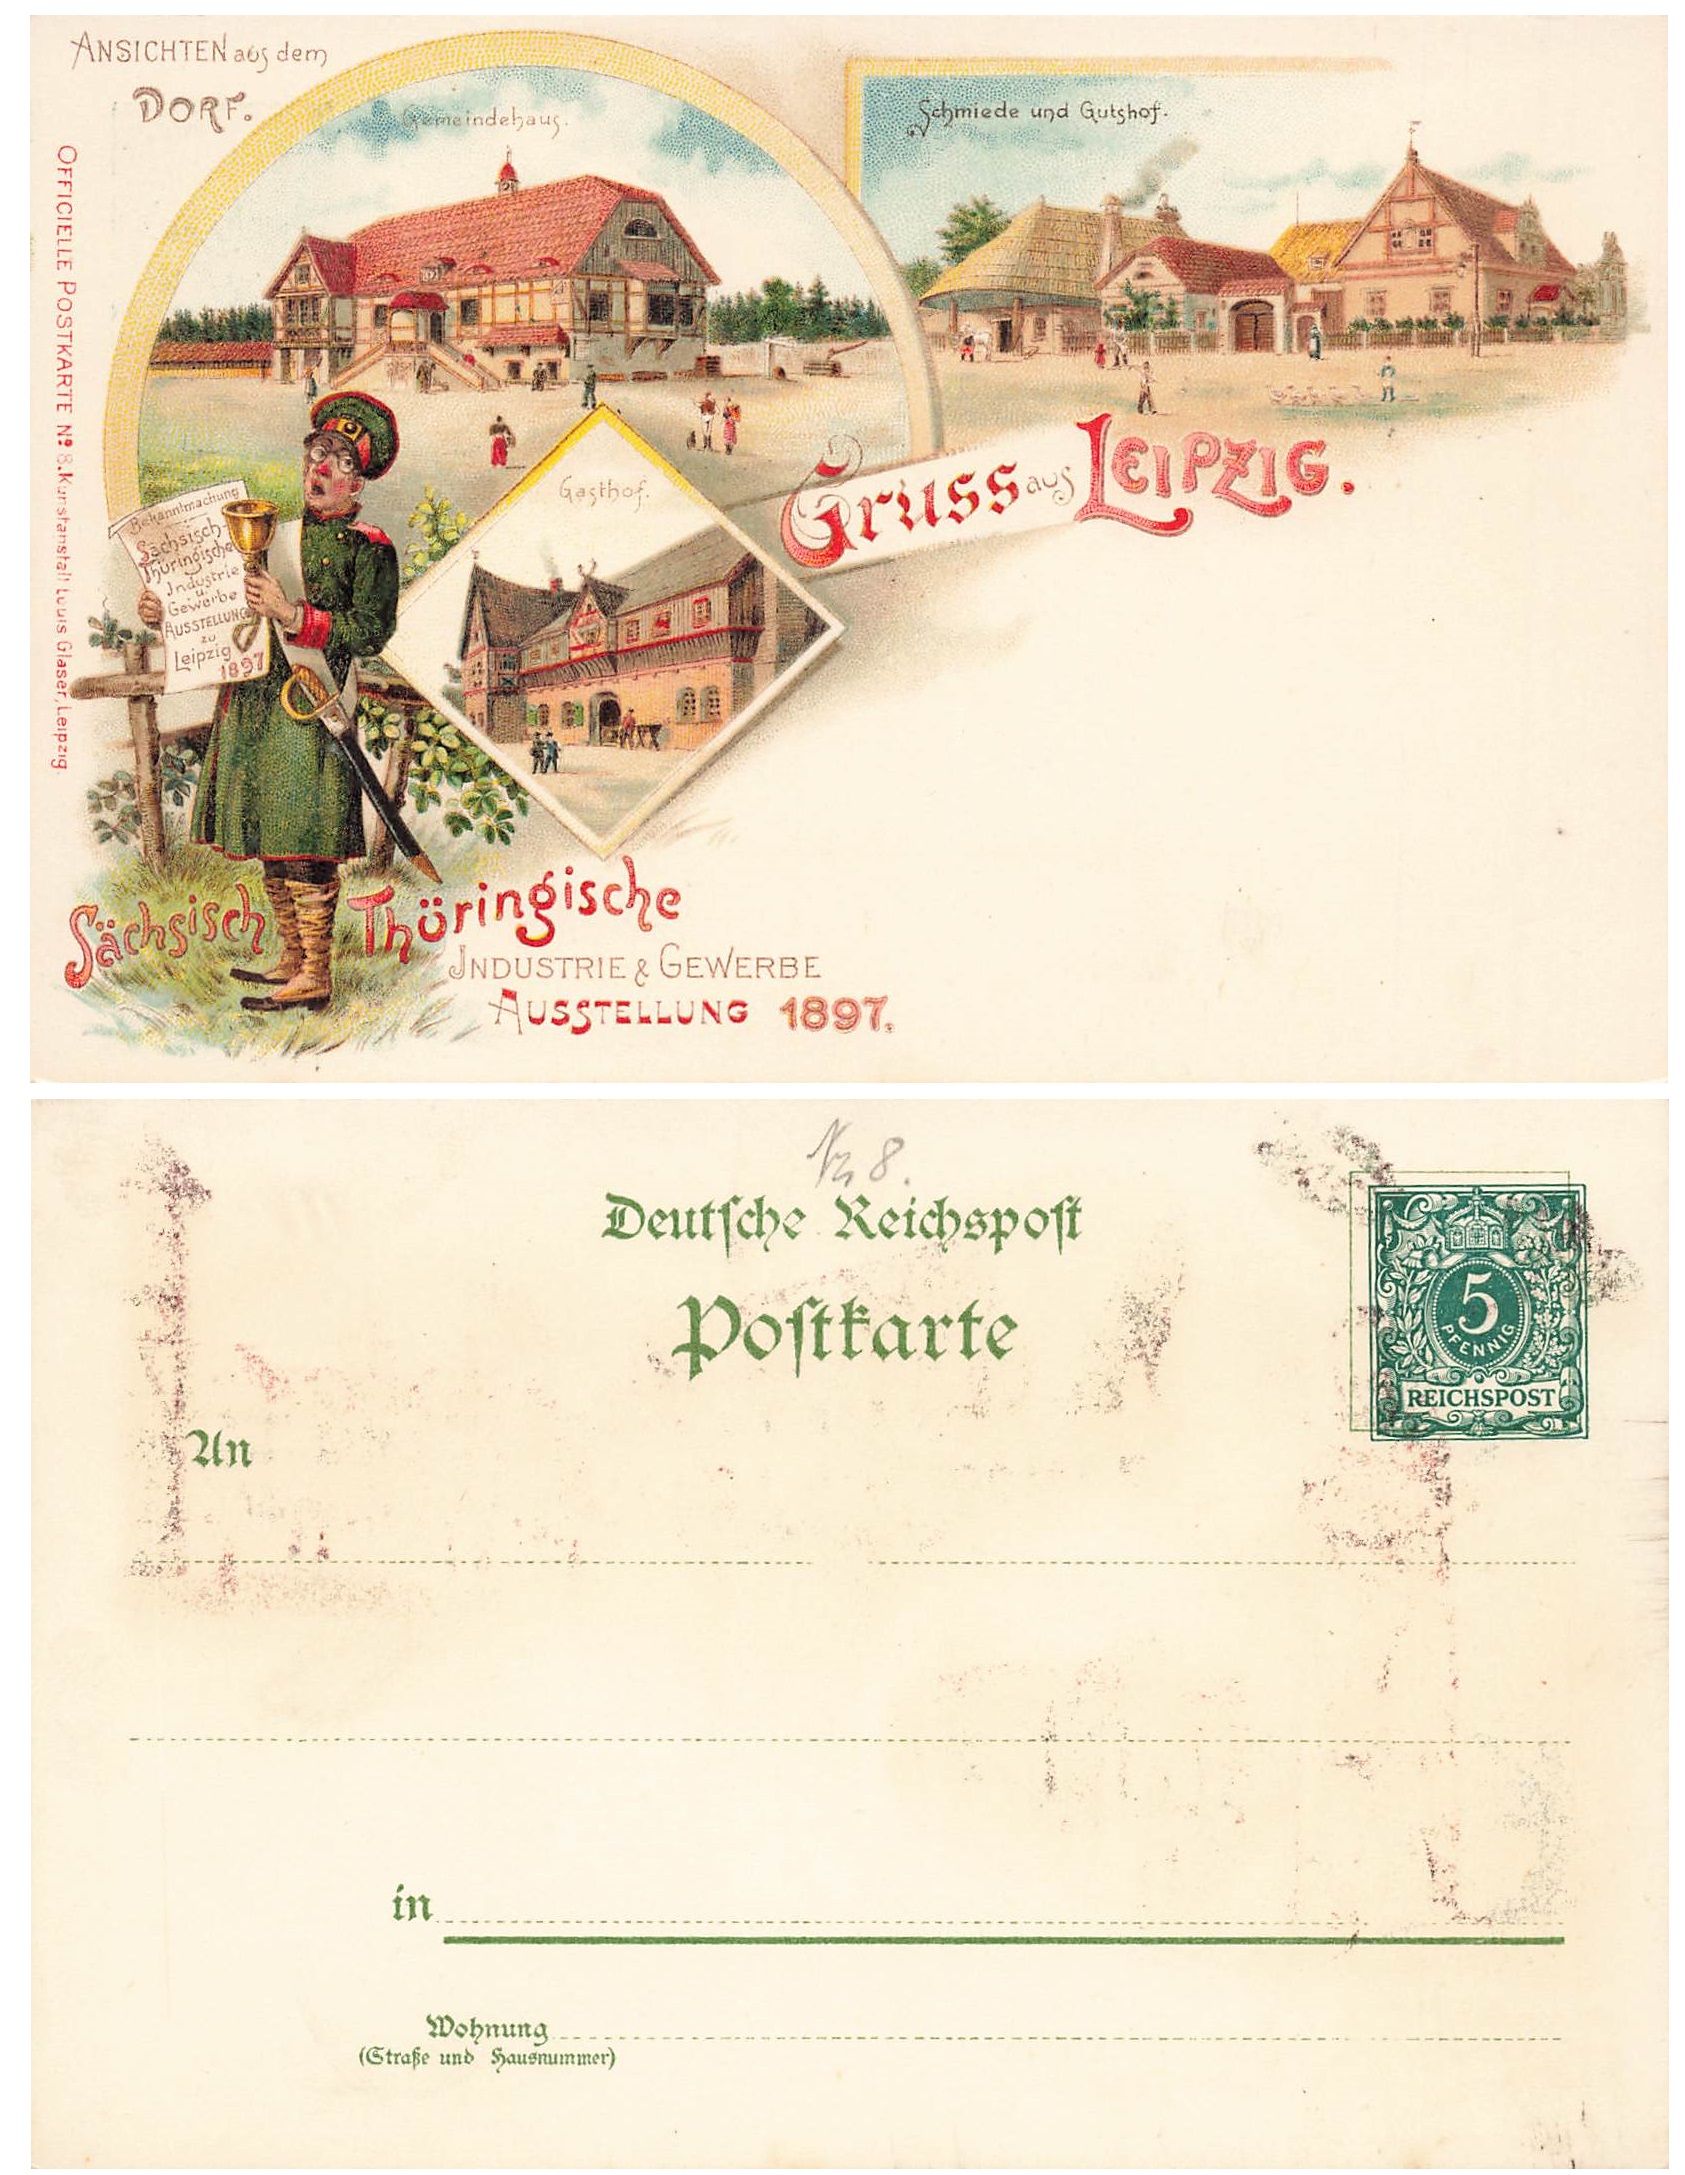 ANSICHTEN aus dem
DORF.
OFFICIELLE POSTKARTE No 8. Kunstanstalt Louis Glaser, Leipzig.
Gemeindehaus.
Schmiede und Gutshof.
Gasthof.
Gruss aus LEIPZIG.
Bekanntmachung
Sächsisch-
Thüringische
Industrie
u.
Gewerbe
AUSSTELLUNG
zu
Leipzig
1897
Sächsisch Thüringische
INDUSTRIE & GEWERBE
AUSSTELLUNG 1897.
No 8.
Deutſche Reichspoſt
Poſtkarte
5
PFENNIG
REICHSPOST
An
in
Wohnung
(Straße und Hausnummer)